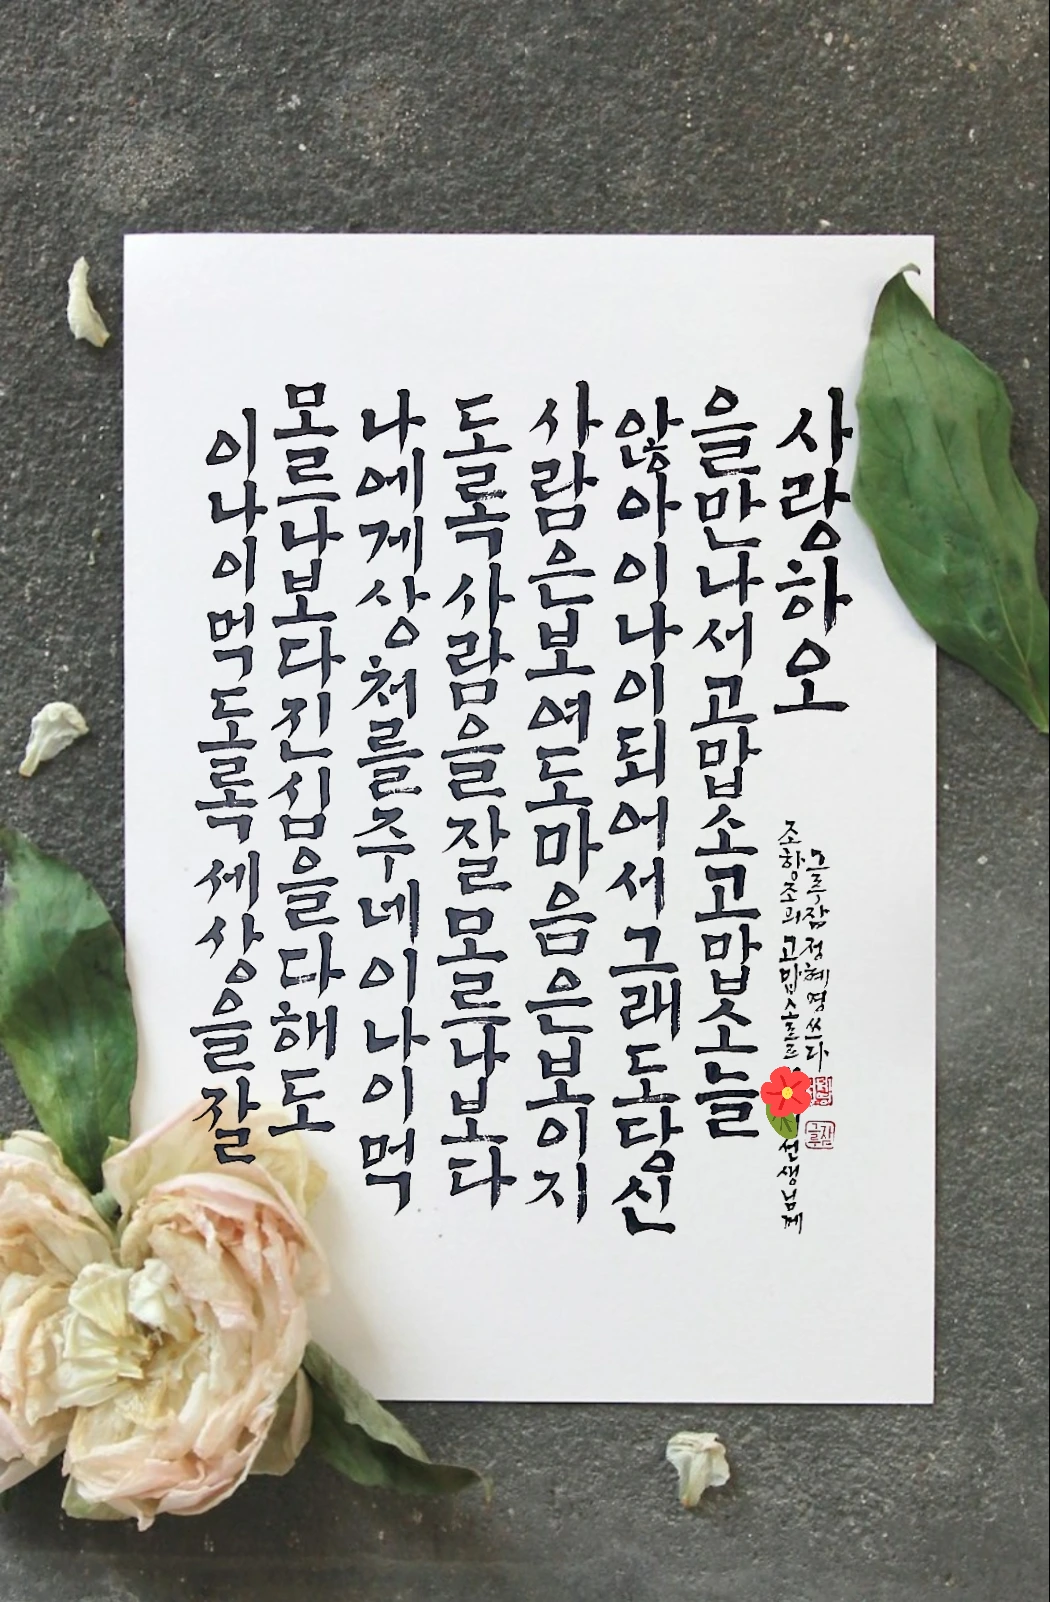 이나이먹도록세상을잘
모르나보다진심을다해도
나에게상처를주네이나이먹
도록사람을잘모르나보다
사람은보여도마음은보이지
않아이나이되어서그래도당신
을만나서고맙소고맙소늘
사랑하오
조항조의 고맙소 선생님께
그루잠 정혜영 쓰다
그루잠